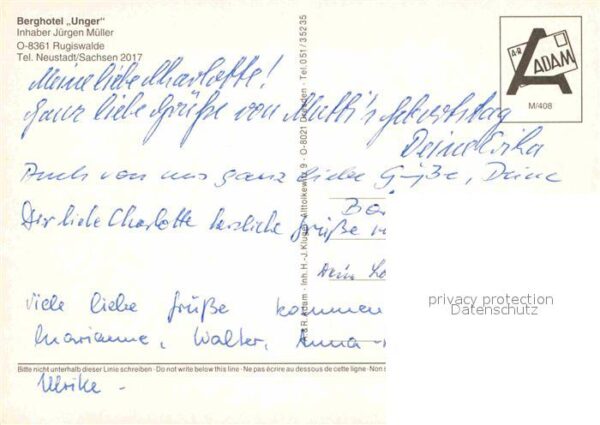 Berghotel „Unger"
Inhaber Jürgen Müller
O-8361 Rugiswalde
Tel. Neustadt/Sachsen 2017
A·R
ADAM
M/408
Meine liebe Charlotte!
Ganz liebe Grüße von Mutti's Geburtstag
Deine Erika
Auch von uns ganz liebe Grüße, Deine
Dir liebe Charlotte herzliche Grüße
Dein
viele liebe Grüße kommen
Marianne, Walter, Anna-
Bitte nicht unterhalb dieser Linie schreiben · Do not write below this line · Ne pas écrire au dessous de cette ligne · Non
Ulrike -
A & R Adam · Inh. H.-J. Kluger · Alttolkewitz 9 · O-8021 Dresden · Tel. 051/35235
privacy protection
Datenschutz